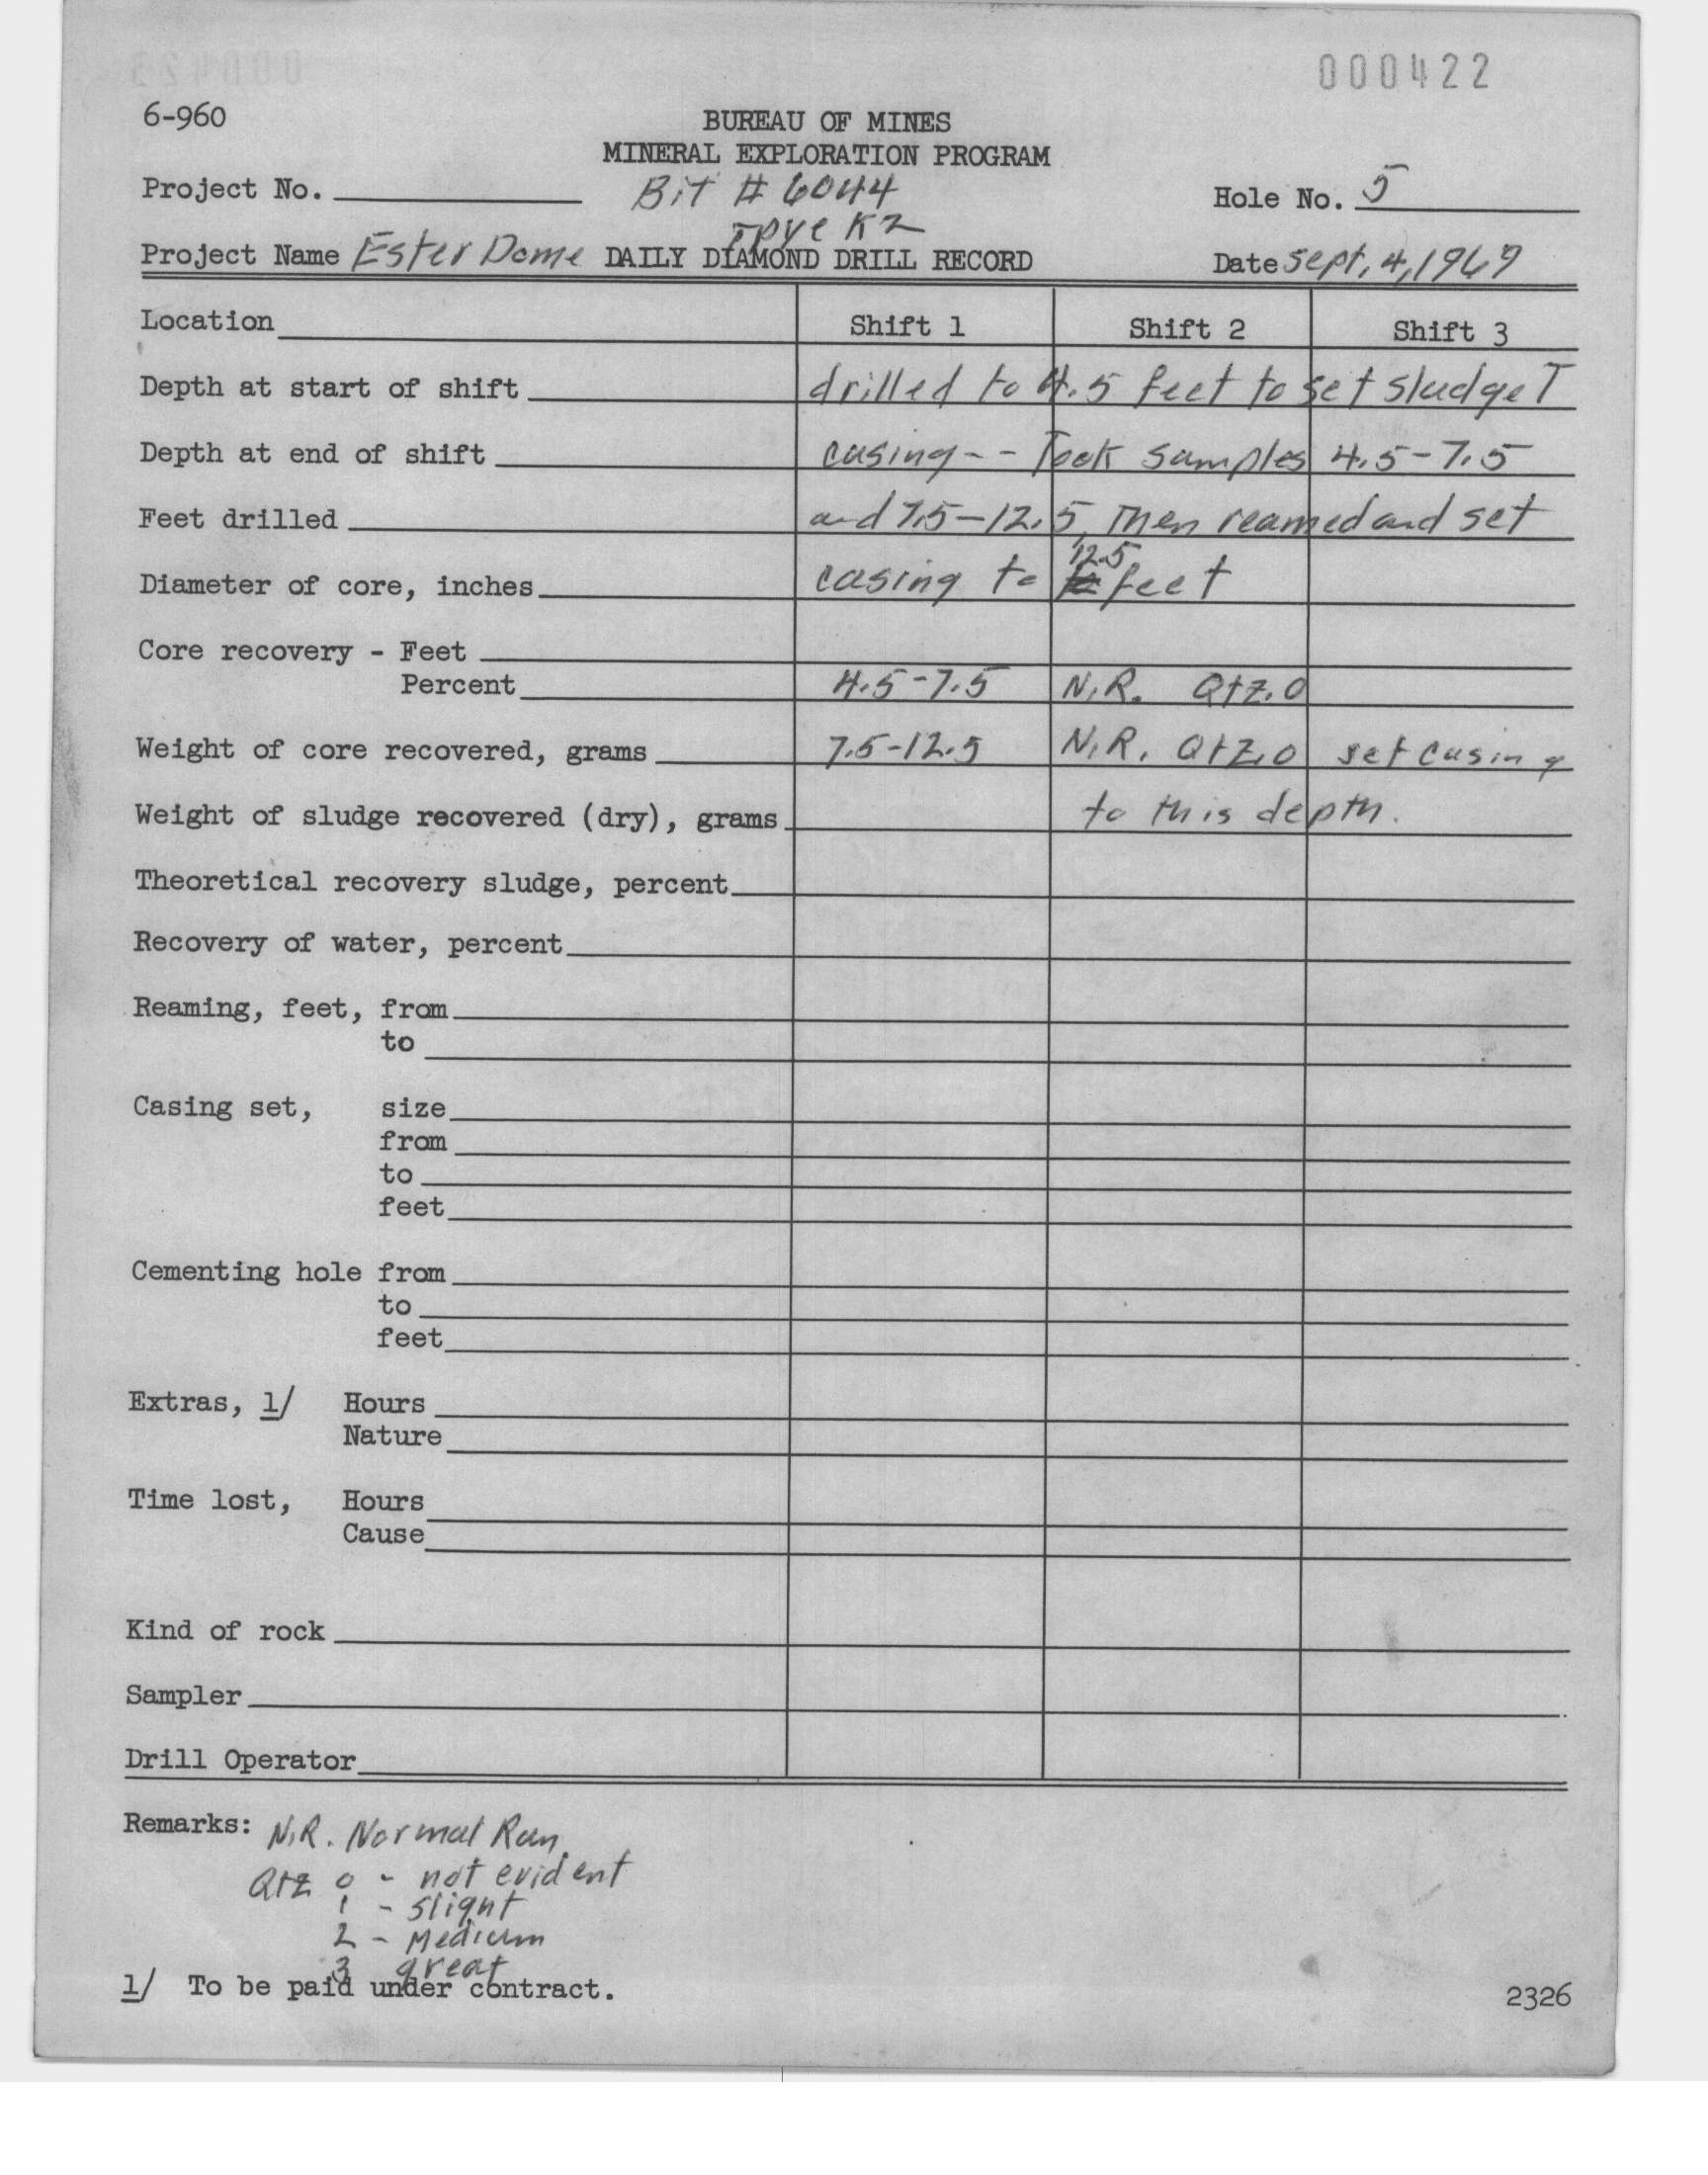 000422
6-960
BUREAU OF MINES
MINERAL EXPLORATION PROGRAM
Project No. Bit # 6044 Hole No. 5
Tpye K2
Project Name Ester Dome DAILY DIAMOND DRILL RECORD Date Sept, 4, 1969
Location Shift 1 Shift 2 Shift 3
Depth at start of shift drilled to 4.5 feet to set sludge T
Depth at end of shift casing-- Took samples 4.5-7.5
Feet drilled and 7.5-12.5, Then reamed and set
12.5
Diameter of core, inches casing to feet
Core recovery - Feet
Percent 4.5-7.5 N.R. Qtz.0
Weight of core recovered, grams 7.5-12.5 N.R. Qtz.0 set casing
Weight of sludge recovered (dry), grams to this depth.
Theoretical recovery sludge, percent
Recovery of water, percent
Reaming, feet, from
to
Casing set, size
from
to
feet
Cementing hole from
to
feet
Extras, 1/ Hours
Nature
Time lost, Hours
Cause
Kind of rock
Sampler
Drill Operator
Remarks: N.R. Normal Run.
Qtz 0 - not evident
1 - Slight
2 - Medium
3 great
1/ To be paid under contract.
2326